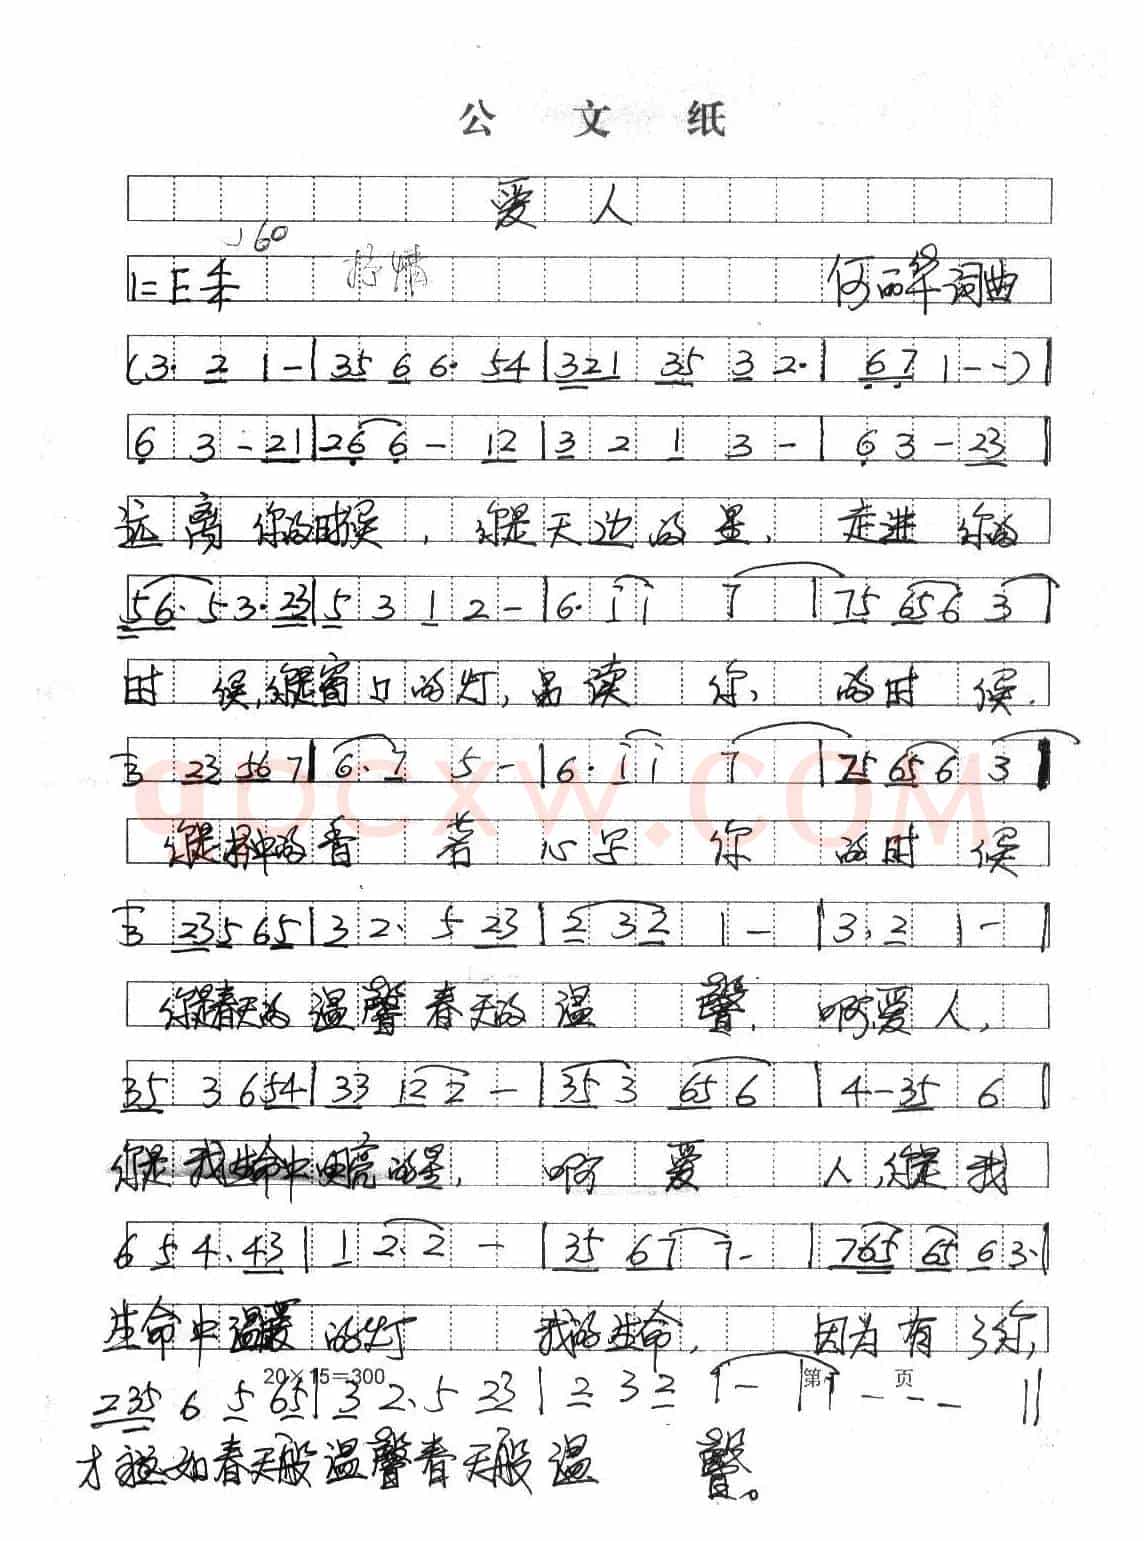 公 文 纸
爱 人
♩60
1=E 4/4 抒情 何丽华词曲
(3· 2 1 - | 35 6 6· 54 | 321 35 3 2· | 67 1 - - ) |
6 3 - 21 | 26 6 - 12 | 3 2 1 3 - | 6 3 - 23 |
远离你的时候,你是天边的星,走进你的
56· 53· 23 | 5 3 1 2 - | 6· i i 7 | 75 656 3 |
时候,你是窗口的灯,品读你,的时候.
3 23 56 7 | 6·7 5 - | 6· i i 7 | 75 656 3 |
你是书中的香 著心写你的时候
3 23 5 65 | 3 2· 5 23 | 2 32 1 - | 3· 2 1 - |
你是春天的温馨春天的温馨,啊,爱人,
35 3 6 54 | 33 12 2 - | 35 3 65 6 | 4 - 35 6 |
你是我生命中更亮的星,啊爱人,你是我
6 5 4· 43 | 1 2·2 - | 35 67 7 - | 765 65 6 3· |
生命中温暖的灯 我的生命,因为有了你,
20×15=300 第 页
235 6 5 65 | 3 2· 5 23 | 2 3 2 1 - | 1 - - - ||
才 如春天般温馨春天般温馨。
QDCXW.COM